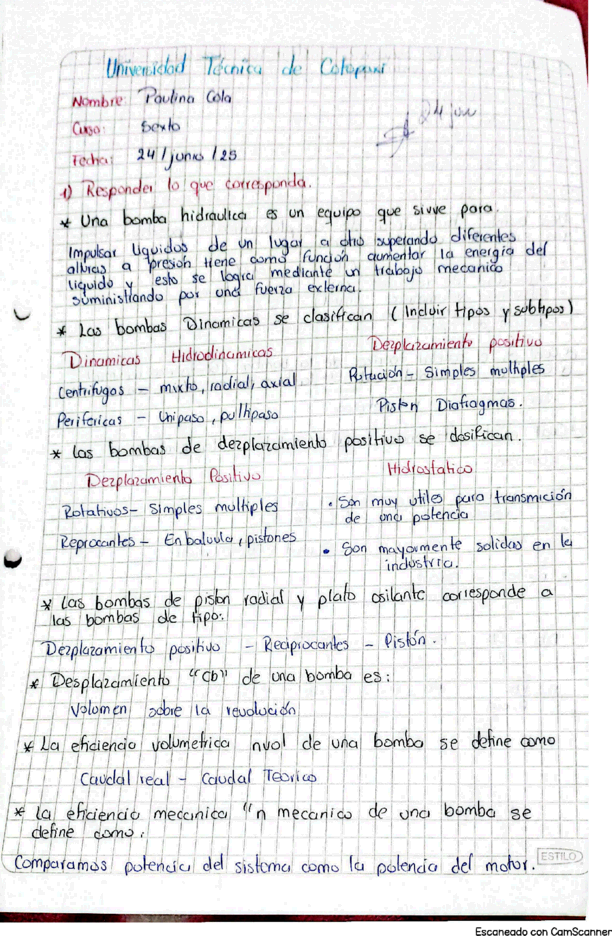 Universidad Técnica de Cotopaxi
Nombre: Paulina Cola
Curso: Sexto
Fecha: 24/junio/25
24 jun
1) Responder lo que corresponda.
* Una bomba hidraulica es un equipo que sirve para.
Impulsar liquidos de un lugar a otro superando diferentes
alturas a presión tiene como función aumentar la energia del
liquido y esto se logra mediante un trabajo mecanico
suministrando por una fuerza externa.
* Las bombas Dinamicas se clasifican (Incluir tipos y subtipos)
Dinamicas Hidrodinamicas Dezplazamiento positivo
Centrifugos – mixto, radial, axial Rotación – Simples multiples
Perifericas – Unipaso, pultipaso Piston Diafragmas.
* Las bombas de dezplazamiento positivo se clasifican.
Dezplazamiento Positivo Hidrostatico
Rotativos – Simples multiples • Son muy utiles para transmición
de una potencia
Reprocantes – En balvula, pistones • Son mayormente solidas en la
industria.
* Las bombas de piston radial y plato osilante corresponde a
las bombas de tipo:
Dezplazamiento positivo – Reciprocantes – Pistón.
* Desplazamiento "Cb" de una bomba es:
Volumen sobre la revolución
* La eficiencia volumetrica nvol de una bomba se define como
Caudal real – Caudal Teorico
* La eficiencia mecanica "n mecanico de una bomba se
define como.
Comparamos potencia del sistema como la potencia del motor.
ESTILO
Escaneado con CamScanner